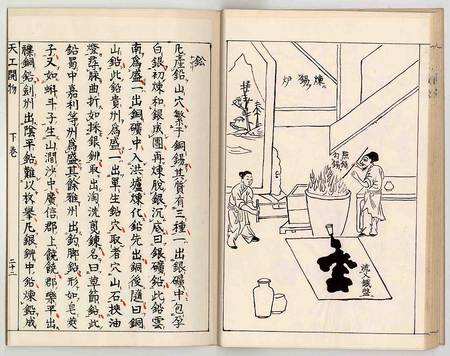 煉錫炉
點鉛
勾錫
流入鐵盤
鉛
凡產鉛山穴繁于銅錫其質有三種一出銀礦中包孕
白銀初煉和銀成團再煉脫銀沉底曰銀礦鉛此鉛雲
南為盛一出銅礦中入洪爐煉化鉛先出銅後隨曰銅
山鉛此鉛貴州為盛一出單生鉛穴取者穴山石挾油
燈尋脉曲折如採銀鉚取出淘洗煎鍊名曰草節鉛此
鉛蜀中嘉利等州為盛其餘雅州出釣脚鉛形如皂莢
子又如蝌斗子生山澗沙中廣信郡上饒饒郡樂平出
雜銅鉛劍州出陰平鉛難以枚舉凡銀鉚中鉛煉鉛成
天工開物 下卷 二十三